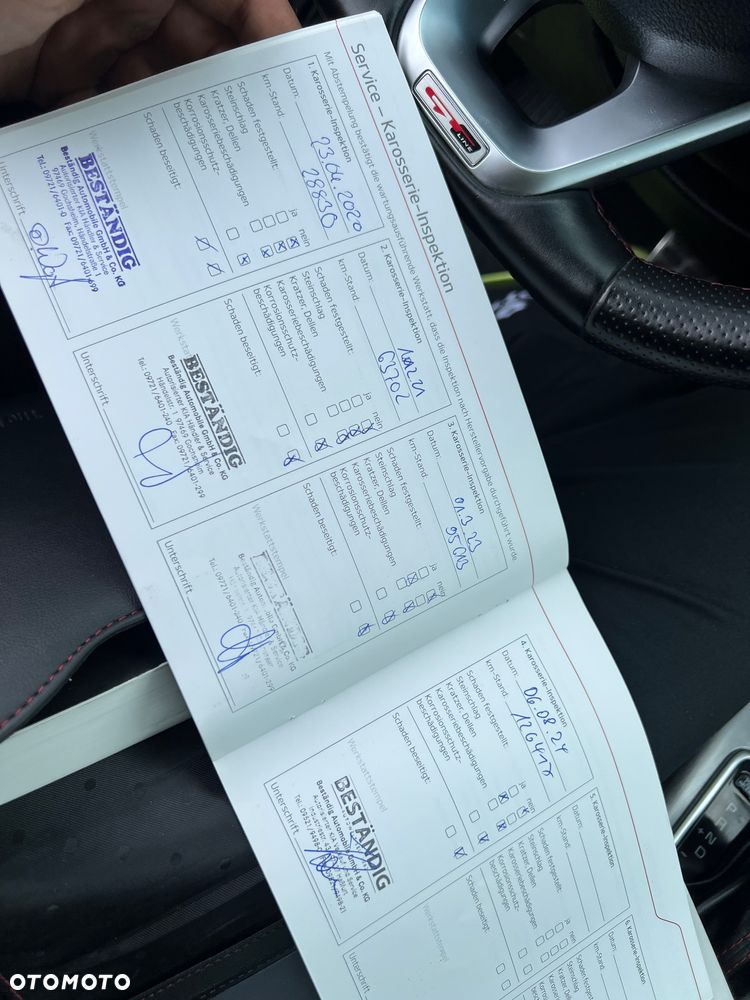 Service – Karosserie-Inspektion
Mit Abstempelung bestätigt die wartungsausführende Werkstatt, dass die Inspektion nach Herstellervorgabe durchgeführt wurde
1. Karosserie-Inspektion
Datum: 23.04.2020
km-Stand: 28830
Schaden festgestellt: ja nein
Steinschlag
Kratzer, Dellen
Karosseriebeschädigungen
Korrosionsschutz-
beschädigungen
Schaden beseitigt:
Werkstattstempel
BESTÄNDIG
Beständig Automobile GmbH & Co. KG
Autorisierter KIA Händler & Service
97469 Gochsheim, Händelstraße 1
Tel.: 09721/6401-0 Fax: 09721/6401-499
Unterschrift
2. Karosserie-Inspektion
Datum:
km-Stand: 63702
Schaden festgestellt: ja nein
Steinschlag
Kratzer, Dellen
Karosseriebeschädigungen
Korrosionsschutz-
beschädigungen
Schaden beseitigt:
BESTÄNDIG
Beständig Automobile GmbH & Co. KG
Autorisierter KIA Händler & Service
Händelstr. 1 97469 Gochsheim
Tel.: 09721/6401-240 Fax: 09721/6401-299
Unterschrift
3. Karosserie-Inspektion
Datum: 01.3.23
km-Stand:
Schaden festgestellt: ja nein
Steinschlag
Kratzer, Dellen
Karosseriebeschädigungen
Korrosionsschutz-
beschädigungen
Schaden beseitigt:
Werkstattstempel
Unterschrift
4. Karosserie-Inspektion
Datum: 06.08.24
km-Stand:
Schaden festgestellt: ja nein
Steinschlag
Kratzer, Dellen
Karosseriebeschädigungen
Korrosionsschutz-
beschädigungen
Schaden beseitigt:
Werkstattstempel
BESTÄNDIG
Beständig Automobile GmbH & Co. KG
Unterschrift
5. Karosserie-Inspektion
Datum:
km-Stand:
Schaden festgestellt: ja nein
Steinschlag
Kratzer, Dellen
Karosseriebeschädigungen
Korrosionsschutz-
beschädigungen
Schaden beseitigt:
Werkstattstempel
Unterschrift
6. Karosserie-Inspektion
Datum:
km-Stand:
Schaden festgestellt:
Steinschlag
GT LINE
P
R
N
D
OTOMOTO